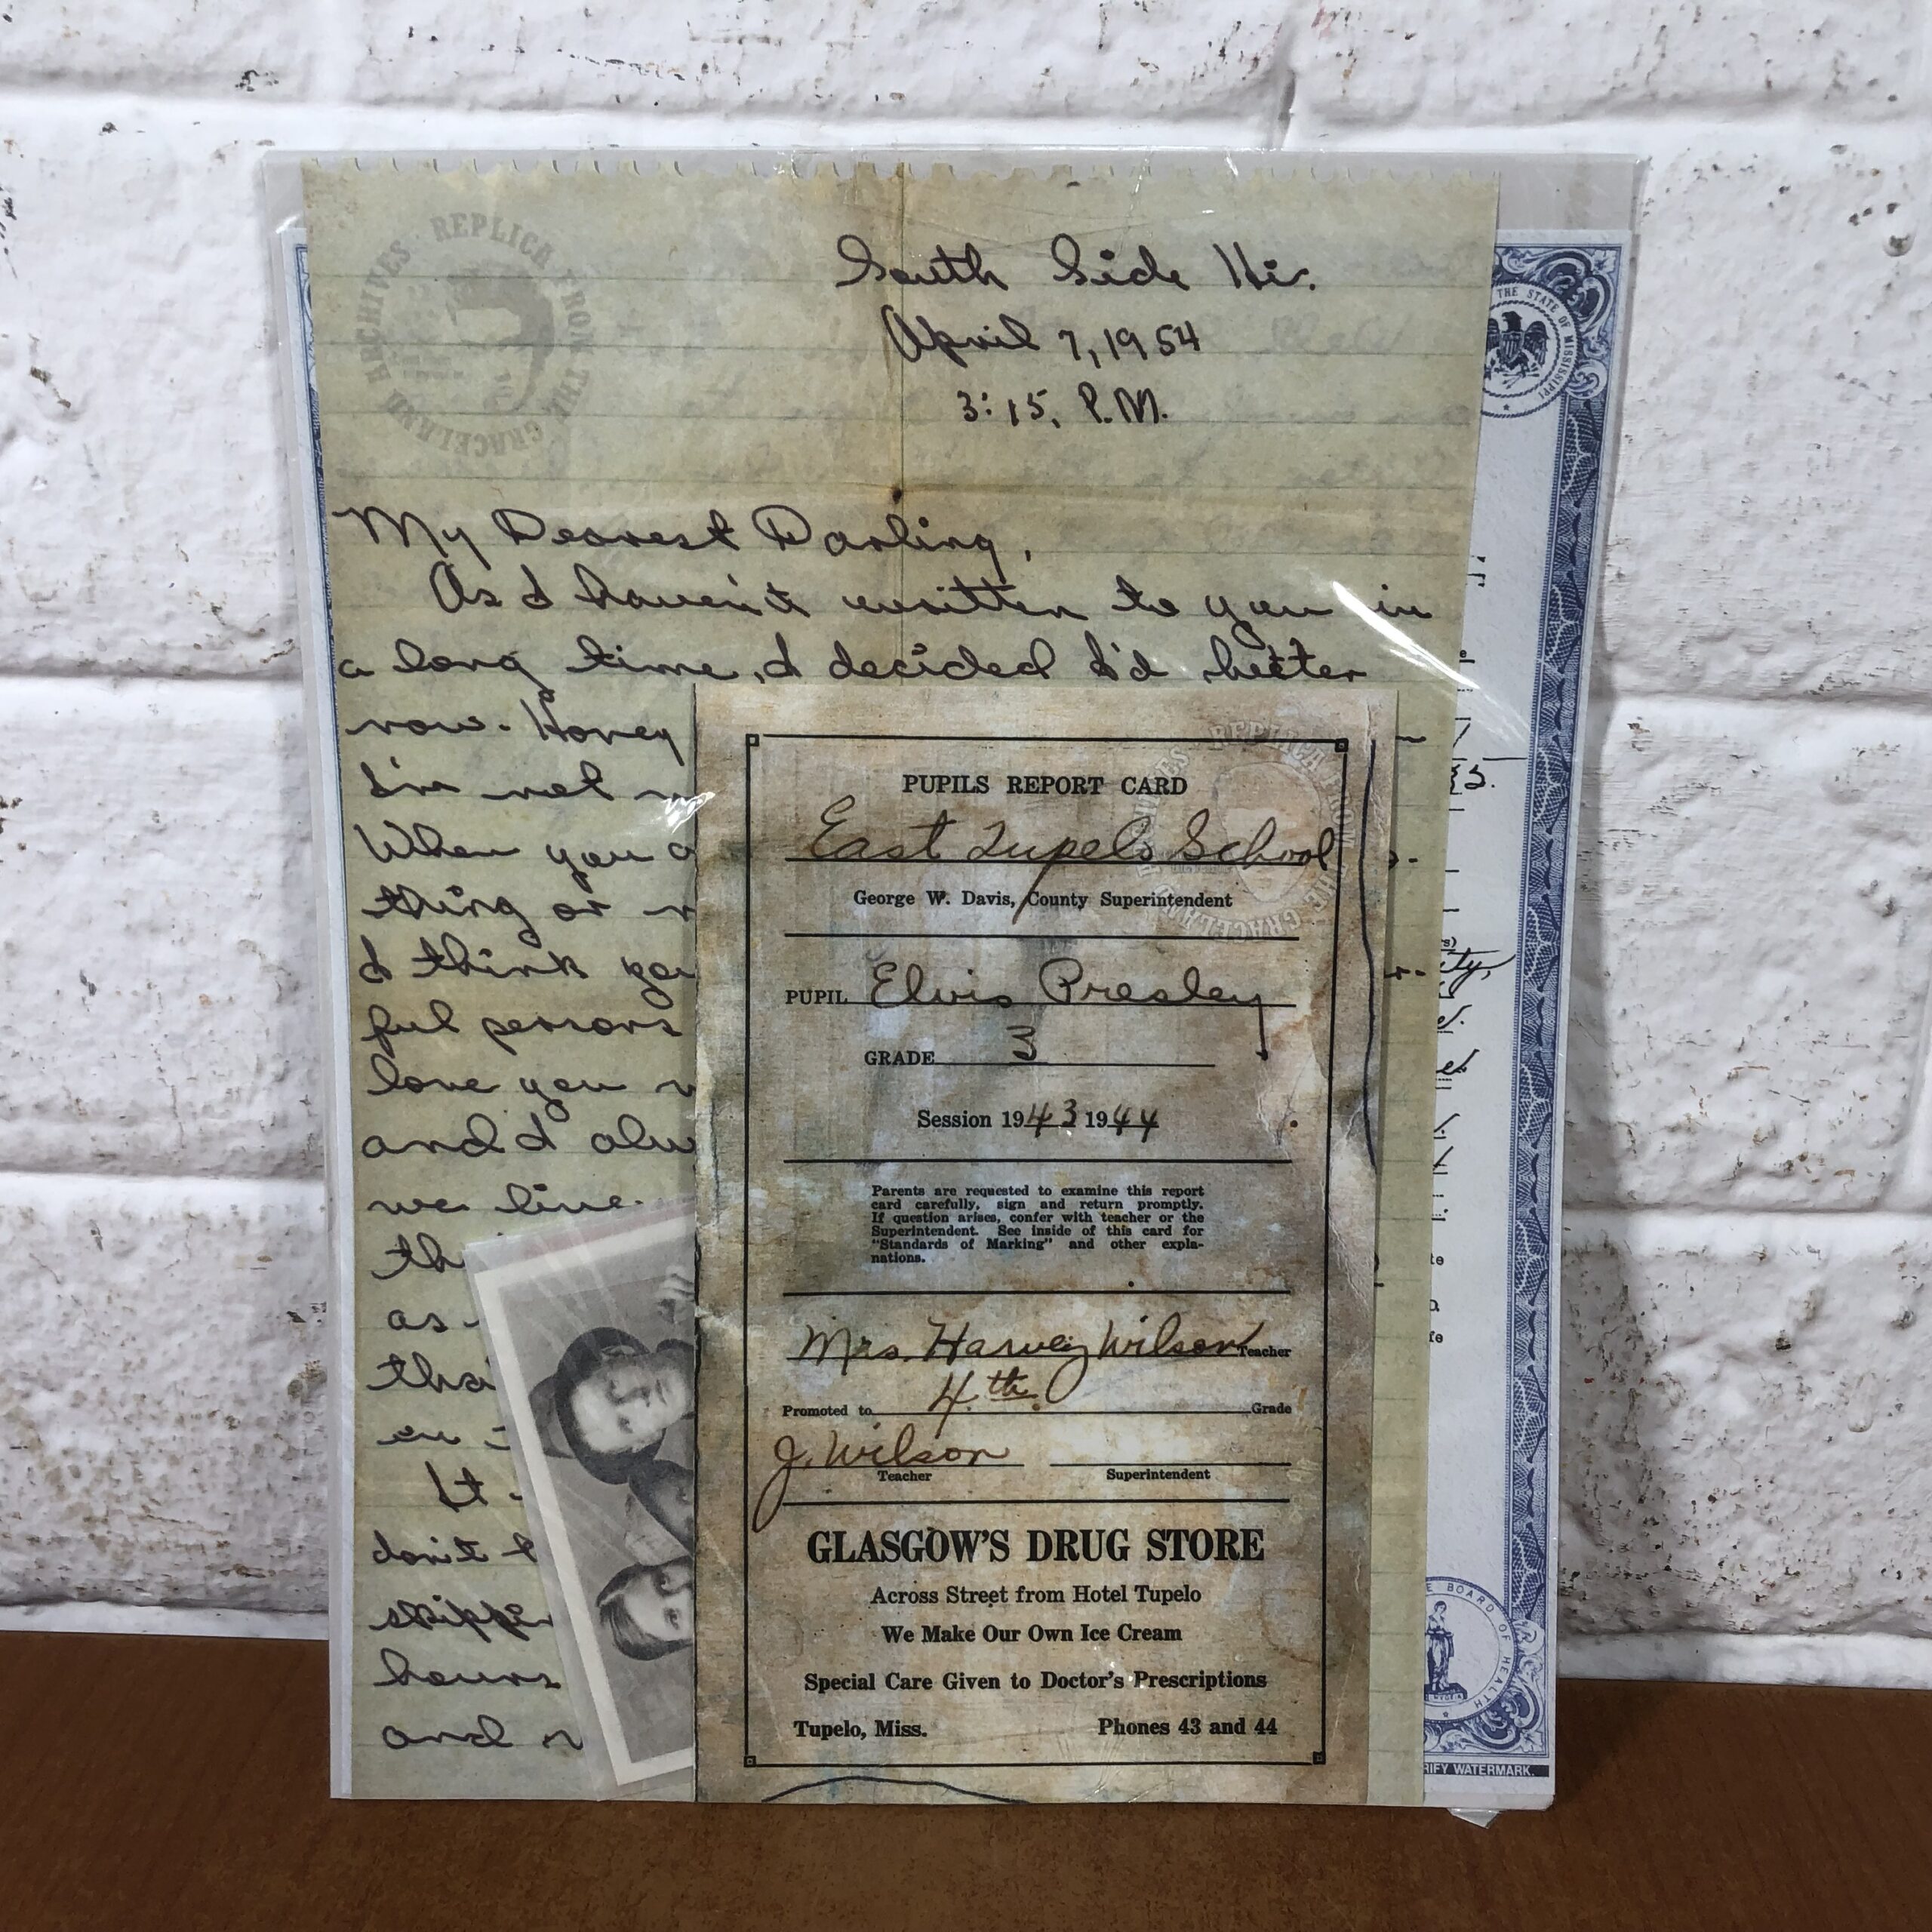 REPLICA FROM THE GRACELAND ARCHIVES
South Side Hi.
April 7, 1954
3:15, P.M.
My Dearest Darling,
As I haven't written to you in
a long time, I decided I'd better
now. Honey
I'm not
When you
thing or
I think you
ful persons
love you
and I
we live.
as
It
don't
hours
and
THE STATE OF MISSISSIPPI
PUPILS REPORT CARD
East Tupelo School
George W. Davis, County Superintendent
PUPIL Elvis Presley
GRADE 3
Session 1943 1944
Parents are requested to examine this report
card carefully, sign and return promptly.
If question arises, confer with teacher or the
Superintendent. See inside of this card for
"Standards of Marking" and other expla-
nations.
Mrs. Harvey Wilson Teacher
Promoted to 4th. Grade
J. Wilson
Teacher Superintendent
GLASGOW'S DRUG STORE
Across Street from Hotel Tupelo
We Make Our Own Ice Cream
Special Care Given to Doctor's Prescriptions
Tupelo, Miss. Phones 43 and 44
REPLICA FROM THE GRACELAND ARCHIVES
BOARD OF HEALTH
WATERMARK.